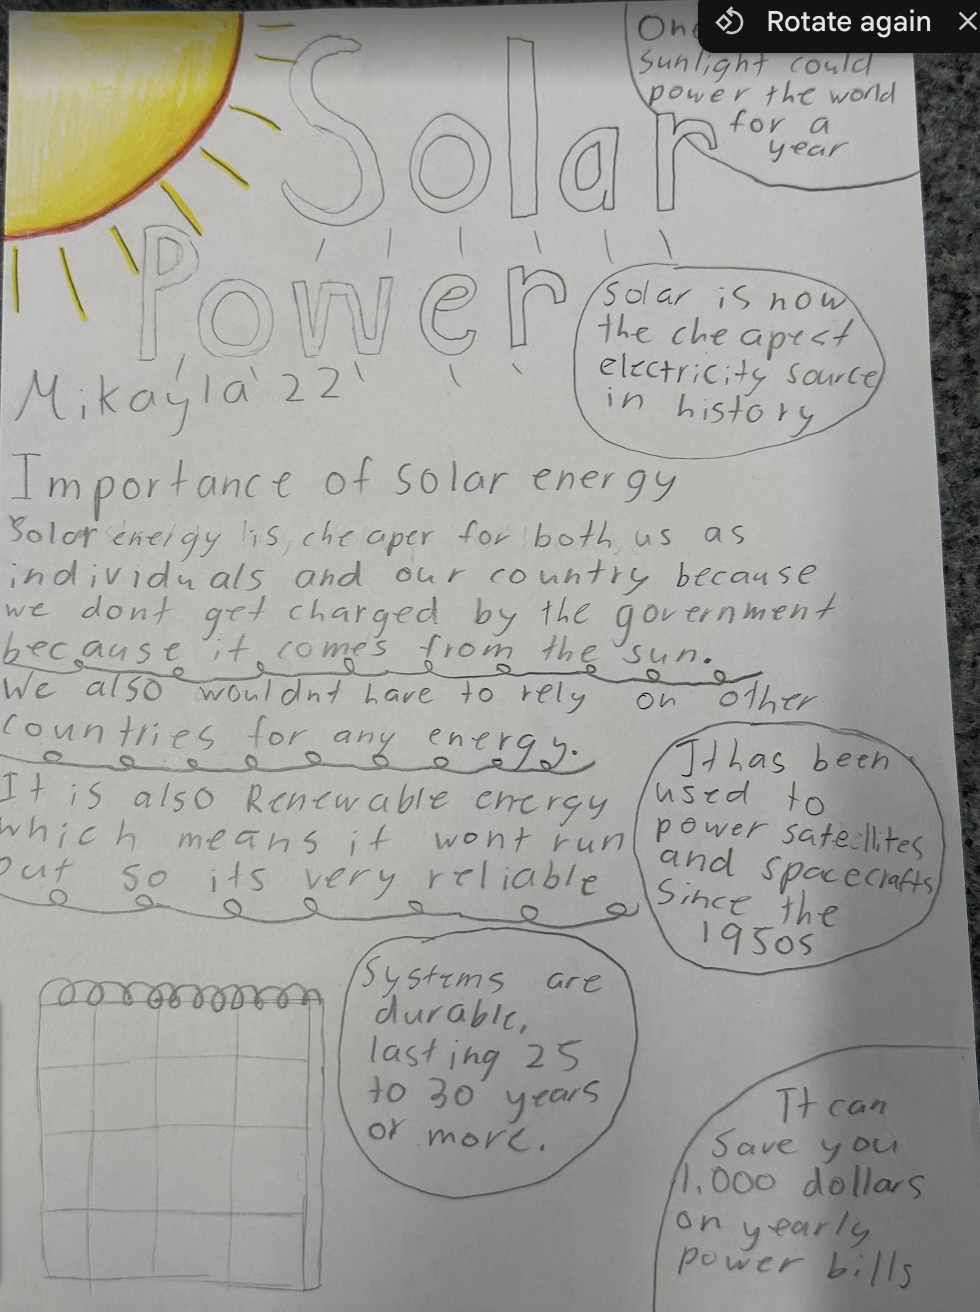 Rotate again
On
sunlight could
power the world
for a
year
Solar
Power
solar is now
the cheapest
electricity source
in history
Mikayla '22'
Importance of solar energy
Solar energy is cheaper for both us as
individuals and our country because
we dont get charged by the government
because it comes from the sun.
We also wouldnt have to rely on other
countries for any energy.
It is also Renewable energy
which means it wont run
out so its very reliable
It has been
used to
power satellites
and spacecrafts
Since the
1950s
Systems are
durable,
lasting 25
to 30 years
or more.
It can
Save you
1,000 dollars
on yearly
power bills